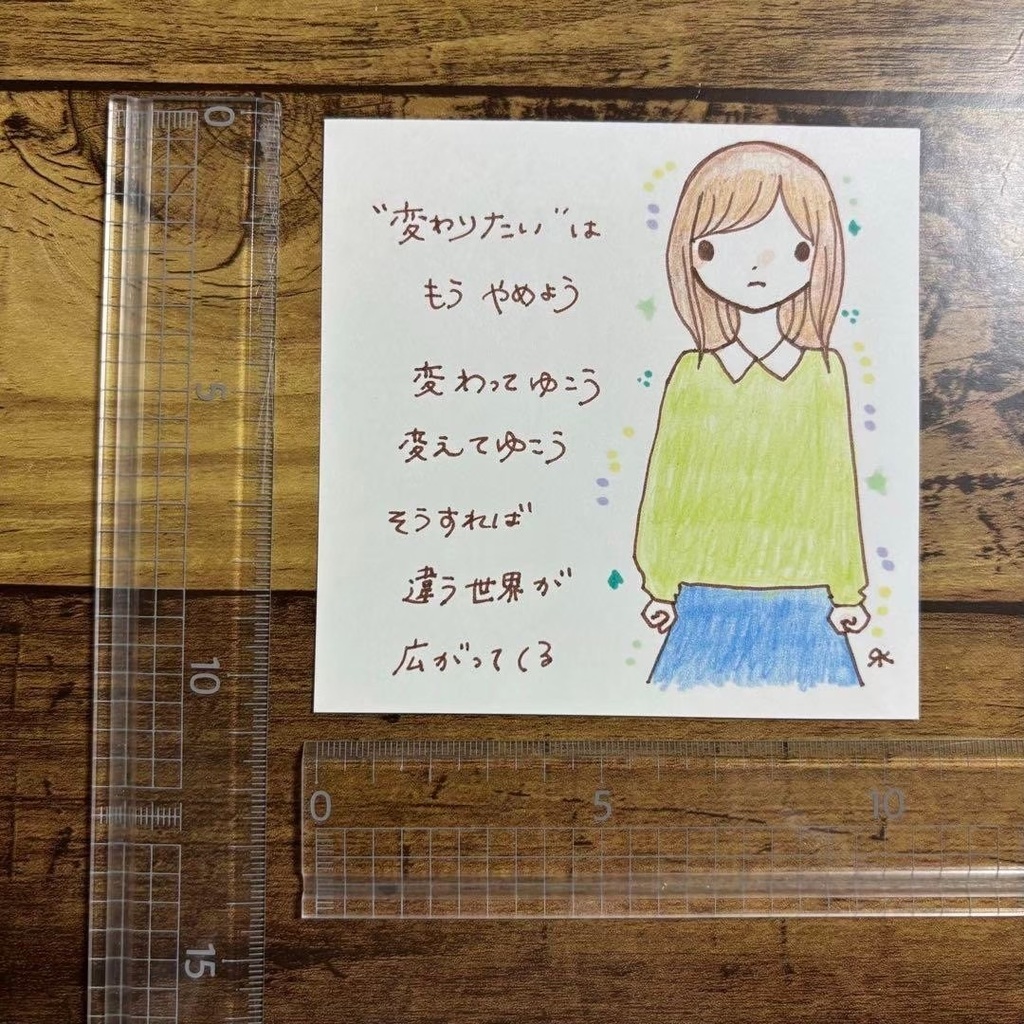 "変わりたい"は
もう やめよう
変わってゆこう
変えてゆこう
そうすれば
違う世界が
広がってくる
0
5
10
15
0
5
10